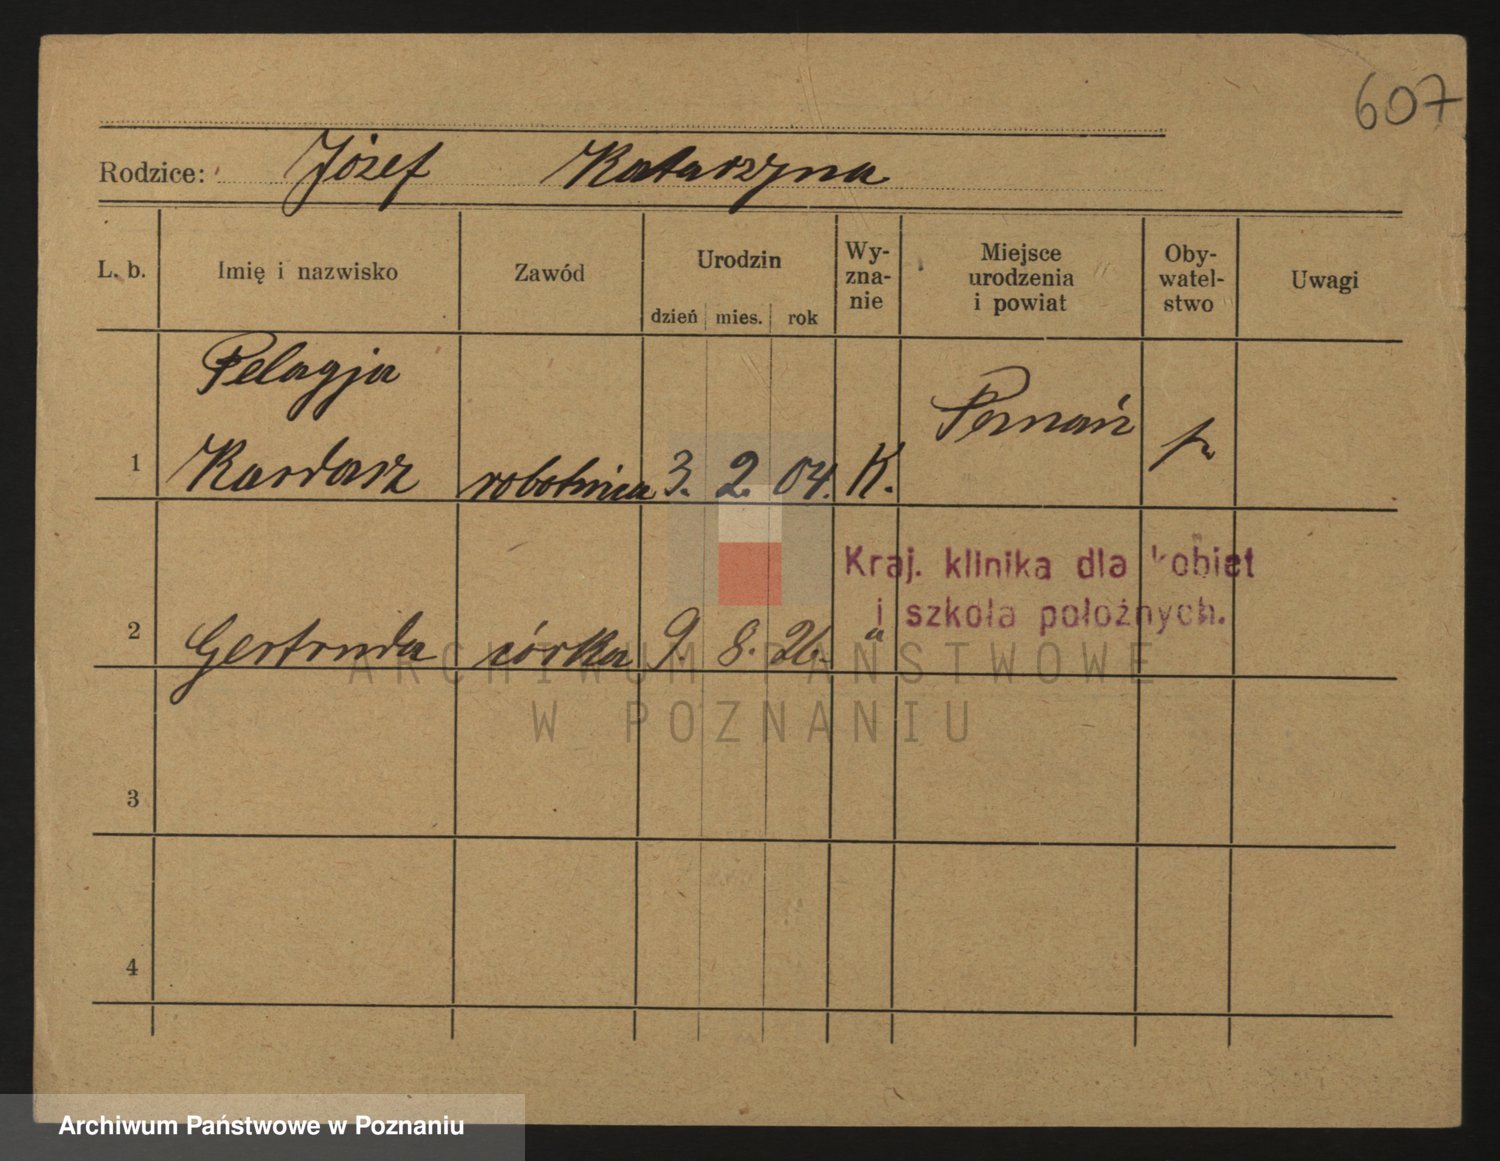 607
Rodzice: Józef Katarzyna
L. b. Imię i nazwisko Zawód Urodzin dzień mies. rok Wy-zna-nie Miejsce urodzenia i powiat Oby-watel-stwo Uwagi
Pelagja
1 Kardasz robotnica 3. 2. 04. K. Poznań p
Kraj. klinika dla kobiet
i szkoła położnych.
2 Gertruda córka 9. 8. 26. "
ARCHIWUM PAŃSTWOWE
W POZNANIU
3
4
Archiwum Państwowe w Poznaniu